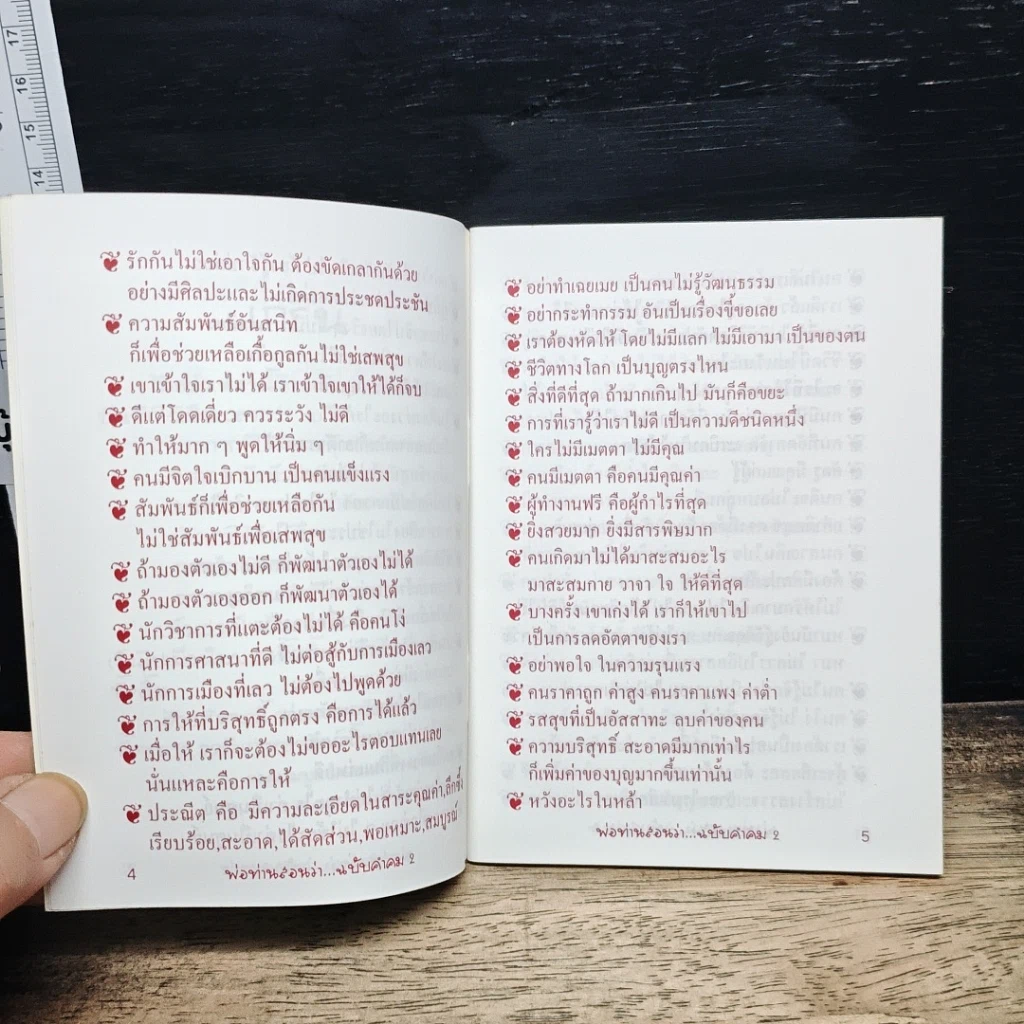 17
16
15
14
รักกันไม่ใช่เอาใจกัน ต้องขัดเกลากันด้วย
อย่างมีศิลปะและไม่เกิดการประชดประชัน
ความสัมพันธ์อันสนิท
ก็เพื่อช่วยเหลือเกื้อกูลกันไม่ใช่เสพสุข
เขาเข้าใจเราไม่ได้ เราเข้าใจเขาให้ได้ก็จบ
ดีแต่โดดเดี่ยว ควรระวัง ไม่ดี
ทำให้มาก ๆ พูดให้นิ่ม ๆ
คนมีจิตใจเบิกบาน เป็นคนแข็งแรง
สัมพันธ์ก็เพื่อช่วยเหลือกัน
ไม่ใช่สัมพันธ์เพื่อเสพสุข
ถ้ามองตัวเองไม่ดี ก็พัฒนาตัวเองไม่ได้
ถ้ามองตัวเองออก ก็พัฒนาตัวเองได้
นักวิชาการที่แตะต้องไม่ได้ คือคนโง่
นักการศาสนาที่ดี ไม่ต่อสู้กับการเมืองเลว
นักการเมืองที่เลว ไม่ต้องไปพูดด้วย
การให้ที่บริสุทธิ์ถูกตรง คือการได้แล้ว
เมื่อให้ เราก็จะต้องไม่ขออะไรตอบแทนเลย
นั่นแหละคือการให้
ประณีต คือ มีความละเอียดในสาระคุณค่า,ลึกซึ้ง
เรียบร้อย,สะอาด,ได้สัดส่วน,พอเหมาะ,สมบูรณ์
4 พ่อท่านสอนว่า...ฉบับคำคม 2
อย่าทำเฉยเมย เป็นคนไม่รู้วัฒนธรรม
อย่ากระทำกรรม อันเป็นเรื่องขี้ขอเลย
เราต้องหัดให้ โดยไม่มีแลก ไม่มีเอามา เป็นของตน
ชีวิตทางโลก เป็นบุญตรงไหน
สิ่งที่ดีที่สุด ถ้ามากเกินไป มันก็คือขยะ
การที่เรารู้ว่าเราไม่ดี เป็นความดีชนิดหนึ่ง
ใครไม่มีเมตตา ไม่มีคุณ
คนมีเมตตา คือคนมีคุณค่า
ผู้ทำงานฟรี คือผู้กำไรที่สุด
ยิ่งสวยมาก ยิ่งมีสารพิษมาก
คนเกิดมาไม่ได้มาสะสมอะไร
มาสะสมกาย วาจา ใจ ให้ดีที่สุด
บางครั้ง เขาเก่งได้ เราก็ให้เขาไป
เป็นการลดอัตตาของเรา
อย่าพอใจ ในความรุนแรง
คนราคาถูก ค่าสูง คนราคาแพง ค่าต่ำ
รสสุขที่เป็นอัสสาทะ ลบค่าของคน
ความบริสุทธิ์ สะอาดมีมากเท่าไร
ก็เพิ่มค่าของบุญมากขึ้นเท่านั้น
หวังอะไรในหล้า
พ่อท่านสอนว่า...ฉบับคำคม 2 5